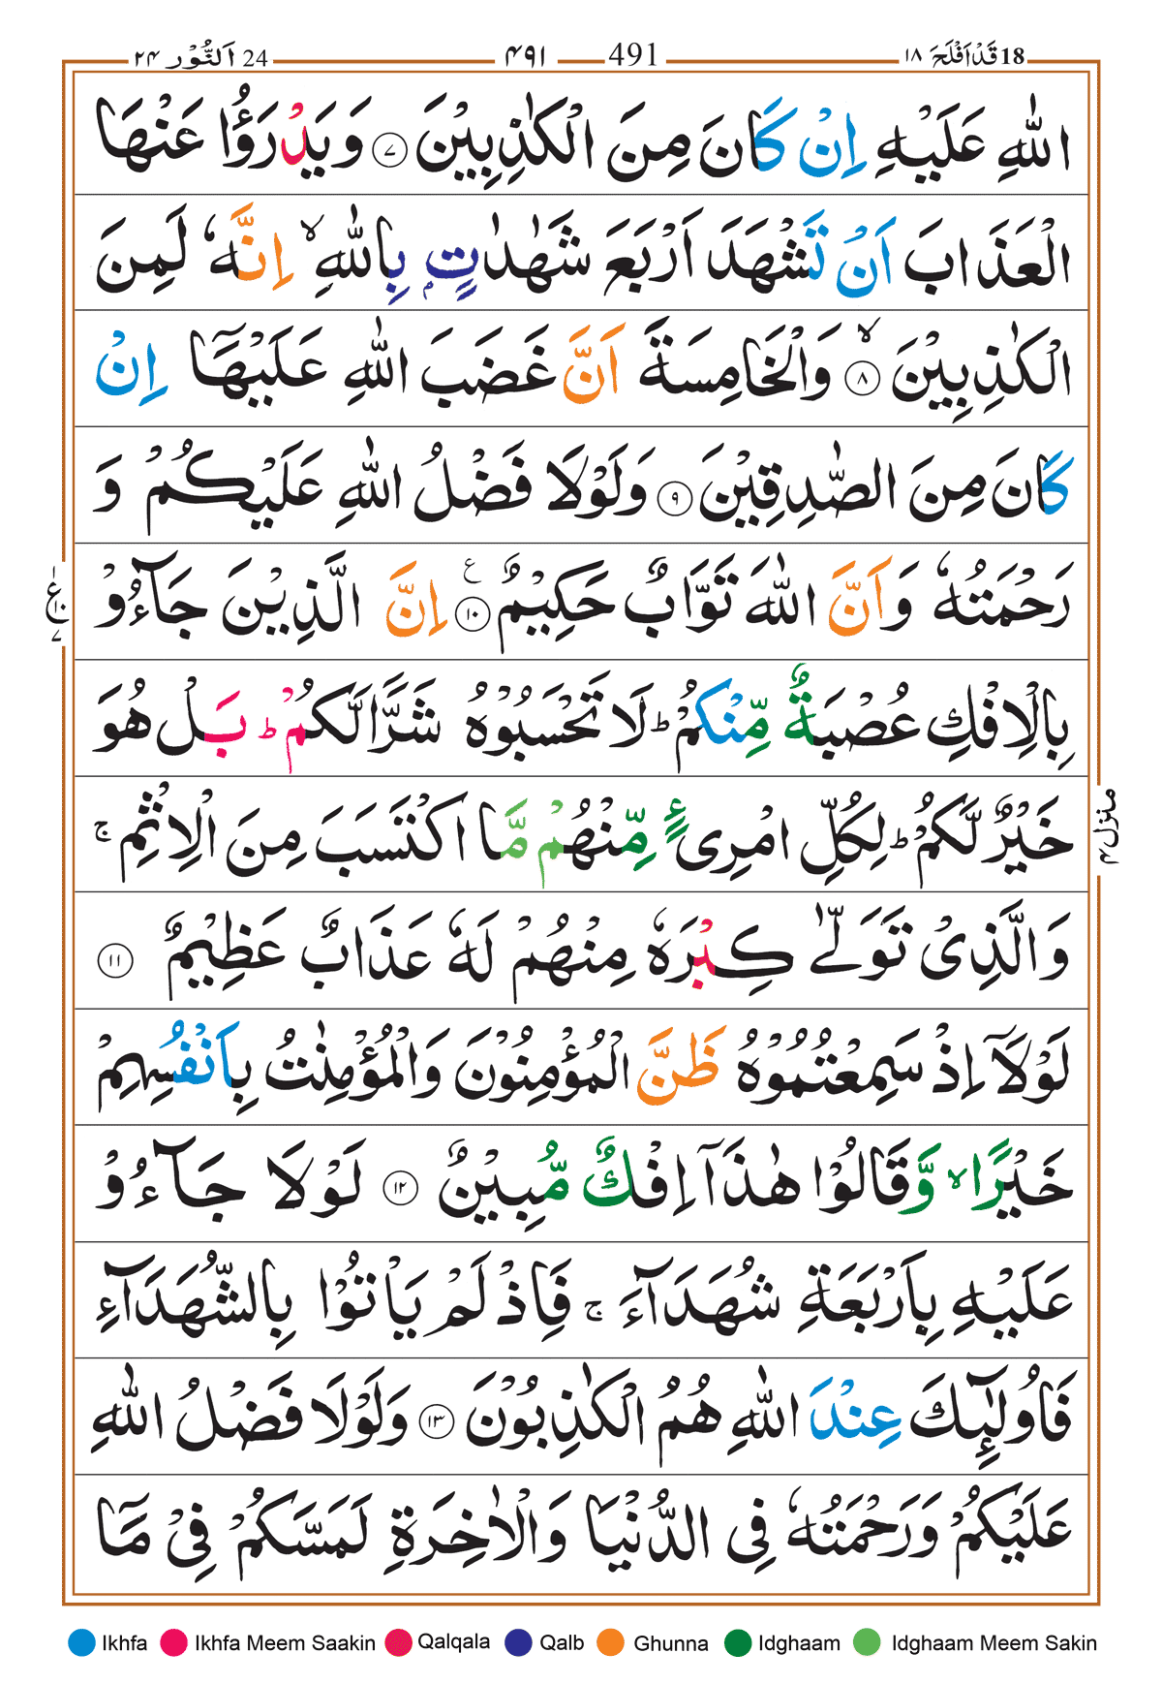 18 قَدْ اَفْلَحَ ١٨ 491 ۴۹۱ 24 اَلنُّوْر ۲۴
اللّٰهِ عَلَيْهِ اِنْ كَانَ مِنَ الْكٰذِبِيْنَ ۷ وَيَدْرَؤُا عَنْهَا
الْعَذَابَ اَنْ تَشْهَدَ اَرْبَعَ شَهٰدٰتٍۭ بِاللّٰهِ ۙ اِنَّهٗ لَمِنَ
الْكٰذِبِيْنَ ۙ ۸ وَالْخَامِسَةَ اَنَّ غَضَبَ اللّٰهِ عَلَيْهَاۤ اِنْ
كَانَ مِنَ الصّٰدِقِيْنَ ۹ وَلَوْلَا فَضْلُ اللّٰهِ عَلَيْكُمْ وَ
رَحْمَتُهٗ وَاَنَّ اللّٰهَ تَوَّابٌ حَكِيْمٌ ۱۰ ع اِنَّ الَّذِيْنَ جَآءُوْ
ع ۱۰ ۷
بِالْاِفْكِ عُصْبَةٌ مِّنْكُمْ ؕ لَا تَحْسَبُوْهُ شَرًّا لَّكُمْ ؕ بَلْ هُوَ
خَيْرٌ لَّكُمْ ؕ لِكُلِّ امْرِیءٍ مِّنْهُمْ مَّا اكْتَسَبَ مِنَ الْاِثْمِ ۚ
منزل ۴
وَالَّذِیْ تَوَلّٰى كِبْرَهٗ مِنْهُمْ لَهٗ عَذَابٌ عَظِيْمٌ ۱۱
لَوْلَاۤ اِذْ سَمِعْتُمُوْهُ ظَنَّ الْمُؤْمِنُوْنَ وَالْمُؤْمِنٰتُ بِاَنْفُسِهِمْ
خَيْرًا ۙ وَّقَالُوْا هٰذَاۤ اِفْكٌ مُّبِيْنٌ ۱۲ لَوْلَا جَآءُوْ
عَلَيْهِ بِاَرْبَعَةِ شُهَدَآءَ ۚ فَاِذْ لَمْ يَاْتُوْا بِالشُّهَدَآءِ
فَاُولٰٓئِكَ عِنْدَ اللّٰهِ هُمُ الْكٰذِبُوْنَ ۱۳ وَلَوْلَا فَضْلُ اللّٰهِ
عَلَيْكُمْ وَرَحْمَتُهٗ فِی الدُّنْيَا وَالْاٰخِرَةِ لَمَسَّكُمْ فِیْ مَاۤ
Ikhfa Ikhfa Meem Saakin Qalqala Qalb Ghunna Idghaam Idghaam Meem Sakin